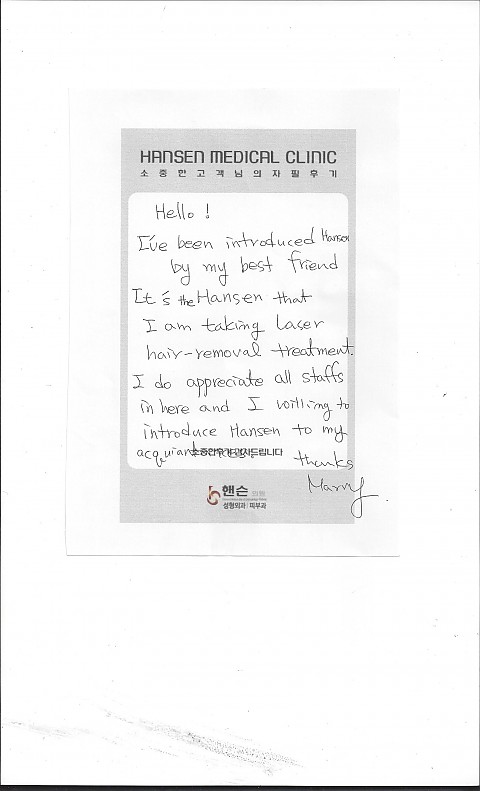 HANSEN MEDICAL CLINIC
소중한고객님의자필후기
Hello !
I've been introduced Hansen
by my best friend
It's the Hansen that
I am taking laser
hair-removal treatment.
I do appreciate all staffs
in here and I willing to
introduce Hansen to my
소중한후기 감사드립니다
thanks
핸슨 의원
성형외과 피부과